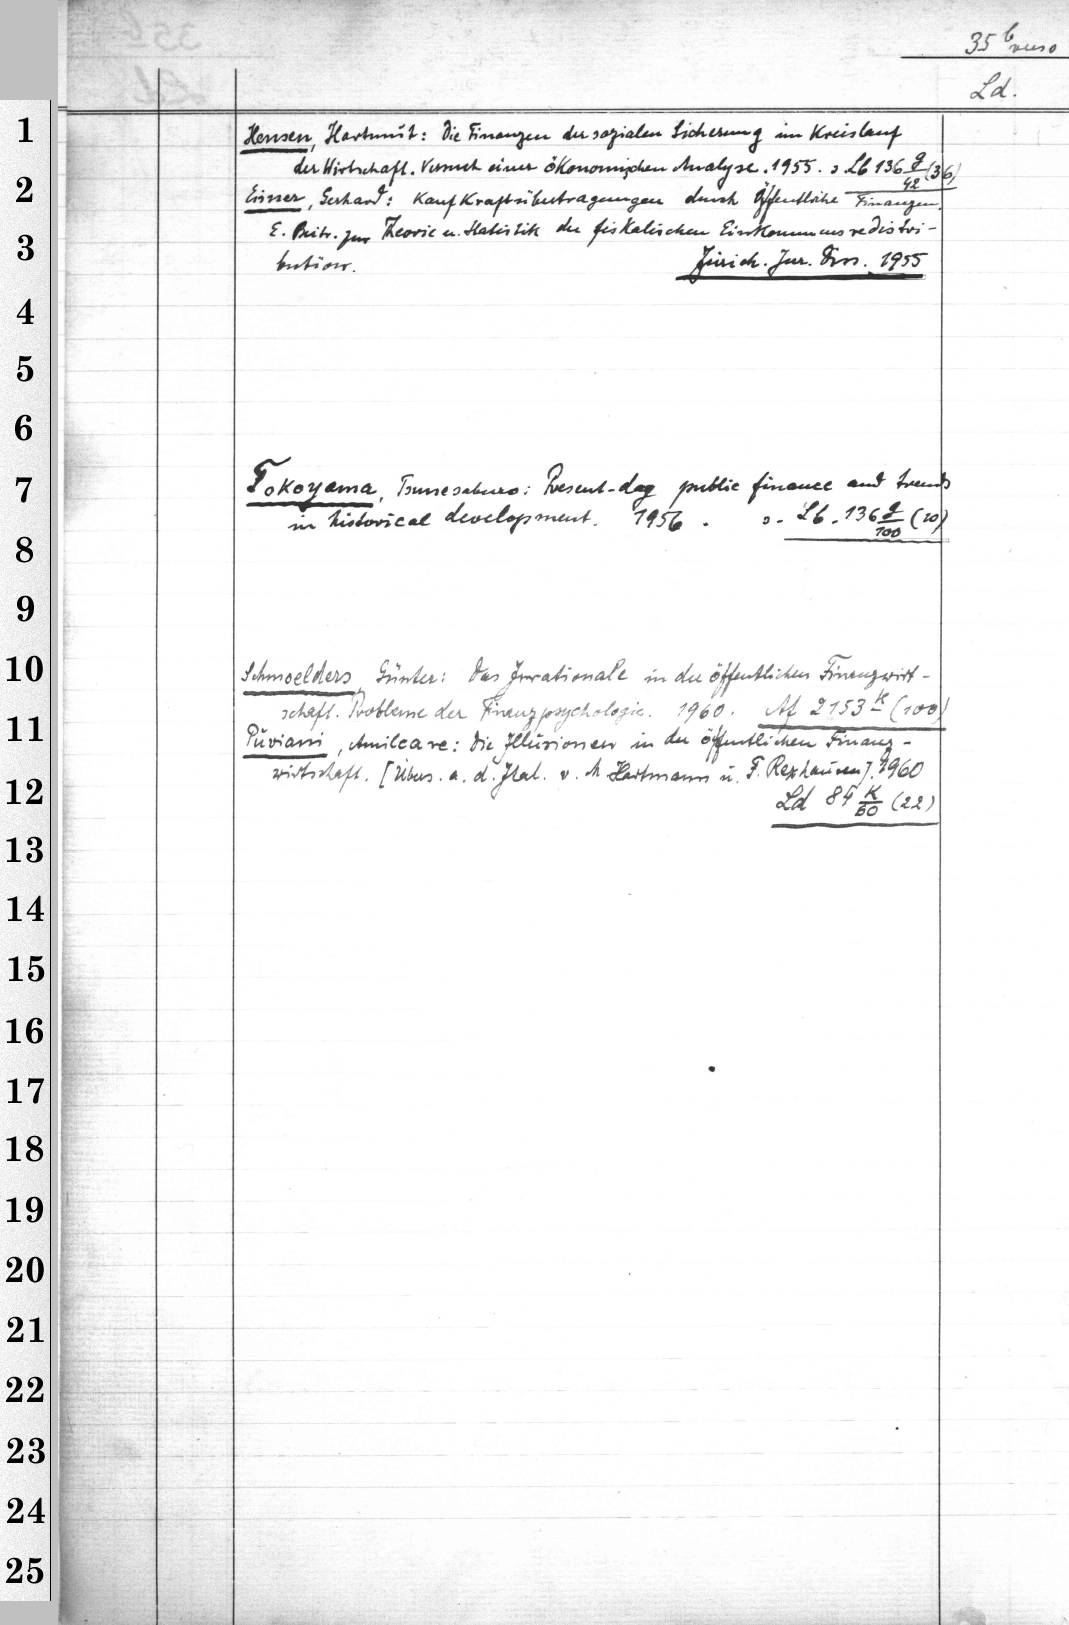 35 b verso
Ld.
Hensen, Hartmut: Die Finanzen der sozialen Sicherung im Kreislauf
der Wirtschaft. Versuch einer ökonomischen Analyse. 1955. s. Lb 136 g/42 (36)
Eisner, Gerhard: Kaufkraftsübertragungen durch öffentliche Finanzen.
E. Beitr. zur Theorie u. Statistik der fiskalischen Einkommensredistri-
bution. Zürich. Jur. Diss. 1955
Tokoyama, Tsunesaburo: Present-day public finance and trends
in historical development. 1956. s. Lb. 136 g/100 (10)
Schmoelders, Günter: Das Irrationale in der öffentlichen Finanzwirt-
schaft. Probleme der Finanzpsychologie. 1960. Af 2153 k (100)
Püviani, Amilcare: Die Illüsionen in der öffentlichen Finanz-
wirtschaft. [Übers. a. d. Ital. v. M Hartmann ü. F. Rexhausen]. 1960
Ld 84 K/60 (22)
1
2
3
4
5
6
7
8
9
10
11
12
13
14
15
16
17
18
19
20
21
22
23
24
25